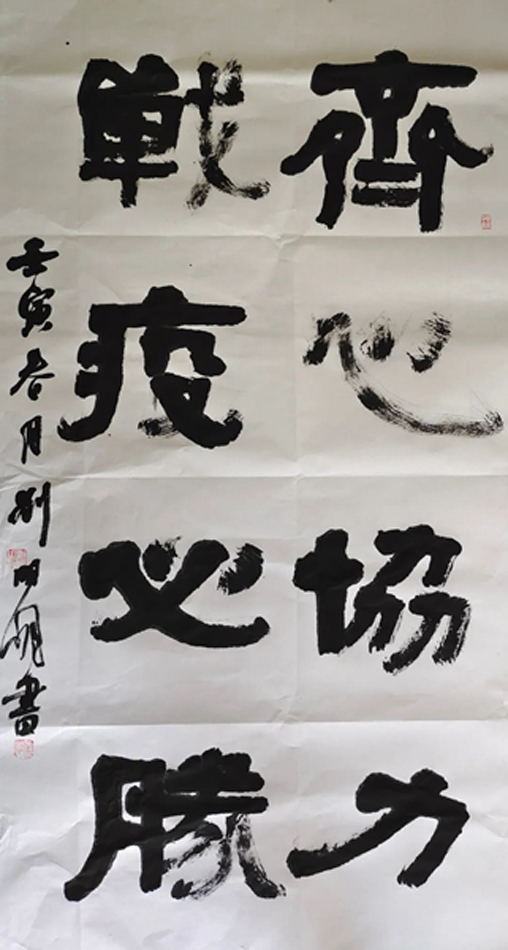 齊心協力
戰疫必勝
壬寅春月劉明書